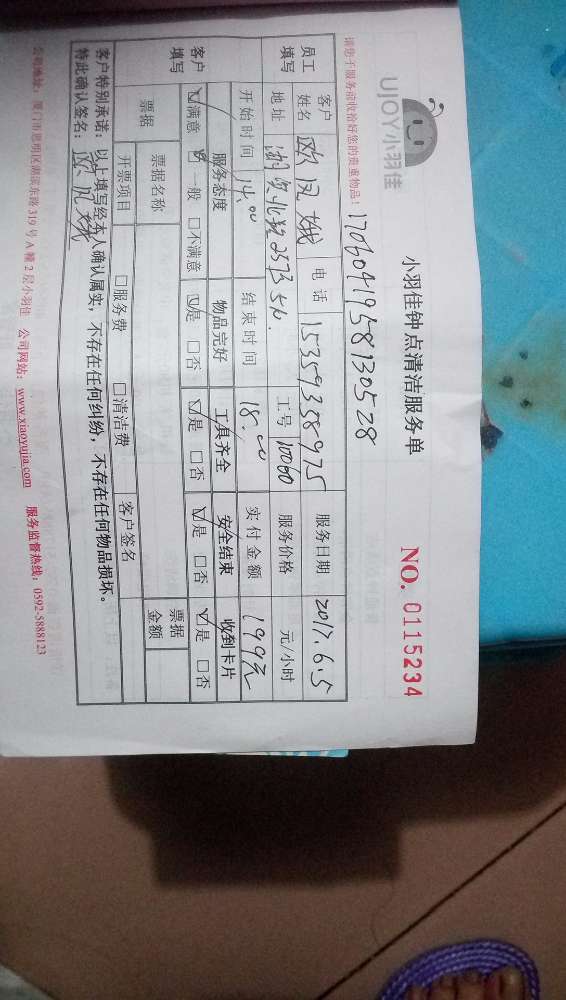 UJOY小羽佳
小羽佳钟点清洁服务单
NO. 0115234
请您于服务前收拾好您的贵重物品!
17060419581305​28
员工填写 客户姓名 欧凤娥 电话 15359358975 服务日期 2017.6.5
地址 湖滨北路2573 工号 10060 服务价格 元/小时
开始时间 14.00 结束时间 18.00 实付金额 199元
客户填写 服务态度 物品完好 工具齐全 安全结束 收到卡片
☑满意 ☑一般 □不满意 ☑是 □否 ☑是 □否 ☑是 □否 ☑是 □否
票据 票据名称 票据金额
开票项目 □服务费 □清洁费 客户签名
客户特别承诺:以上填写经本人确认属实,不存在任何纠纷,不存在任何物品损坏。
特此确认签名: 欧凤娥
公司地址:厦门市思明区湖滨东路319号A幢2层小羽佳 公司网站:www.xiaoyujia.com 服务监督热线:0592-5888123